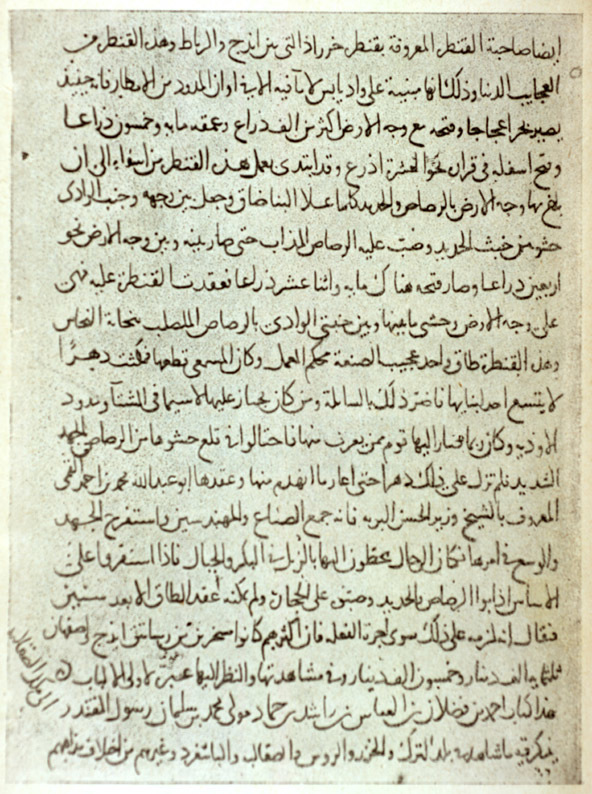 ايضا صاحبة القنطرة المعروفة بقنطرة خرراذ التى بين ايذج والرباط وهذه القنطرة من
العجايب الدنيا وذلك انها مبنية على واد يابس لا ما فيه الا فى اوان المدود من الامطار فانه حينيذ
يصير بحرا عجاجا وفتحه مع وجه الارض اكثر من الف ذراع وعمقه مايه وخمسون ذراعا
وفتح اسفله فى قراره نحو العشرة اذرع وقد ابتدى بعمل هذه القنطرة من اسفله الى ان
بلغ بها وجه الارض بالرصاص والحديد كلما علا البنا ضاق وجعل بين وجهه وجنب الوادى
حشو من خبث الحديد وصب عليه الرصاص المذاب حتى صار بينه وبين وجه الارض نحو
اربعين ذراعا وصار فتحه هناك مايه واثنا عشر ذراعا فعقدت القنطرة عليه فهى
على وجه الارض وحشى ما بينها وبين جنبتى الوادى بالرصاص المصلب بنحاتة النحاس
وهذه القنطرة طاق واحد عجيب الصنعة محكم العمل وكان المسمعى قطعها فمكثت دهرا
لا يتسع احد لبنايها فاضر ذلك بالسابلة ومن كان يجتاز عليها لا سيما فى الشتا ومدود
الاوديه وكان ربما صار اليها قوم ممن يقرب منها فاحتالوا فى قلع حشوها من الرصاص بالجهد
الشديد فلم تزل على ذلك دهرا حتى اعاد ما انهدم منها وعقدها ابو عبدالله محمد بن احمد القمى
المعروف بالشيخ وزير الحسن البويه فانه جمع الصناع والمهندسين واستفرغ الجهد
والوسع فى امرها فكان الرجال يحطون اليها بالزبل فى البكر والحبال فاذا استقروا على
الاساس اذابوا الرصاص والحديد وصبوه على الحجاره ولم يمكنه عقد الطاق الا بعد سنتين
فيقال انه لزمه على ذلك سوى اجرة الفعله فان اكثرهم كانوا مسخرين من رساتيق ايذج واصفهان
ثلثمايه الف دينار وخمسون الف دينار وفى مشاهدتها والنظر اليها عبرة لاولى الالباب
هذا كتاب احمد بن فضلان بن العباس بن راشد بن حماد مولى محمد بن سلمان رسول المقتدر
الى ملك الصقالبه
يذكر فيه ما شاهد فى بلد الترك والخزر والروس والصقالبه والباشغرد وغيرهم من اختلاف مذاهبهم